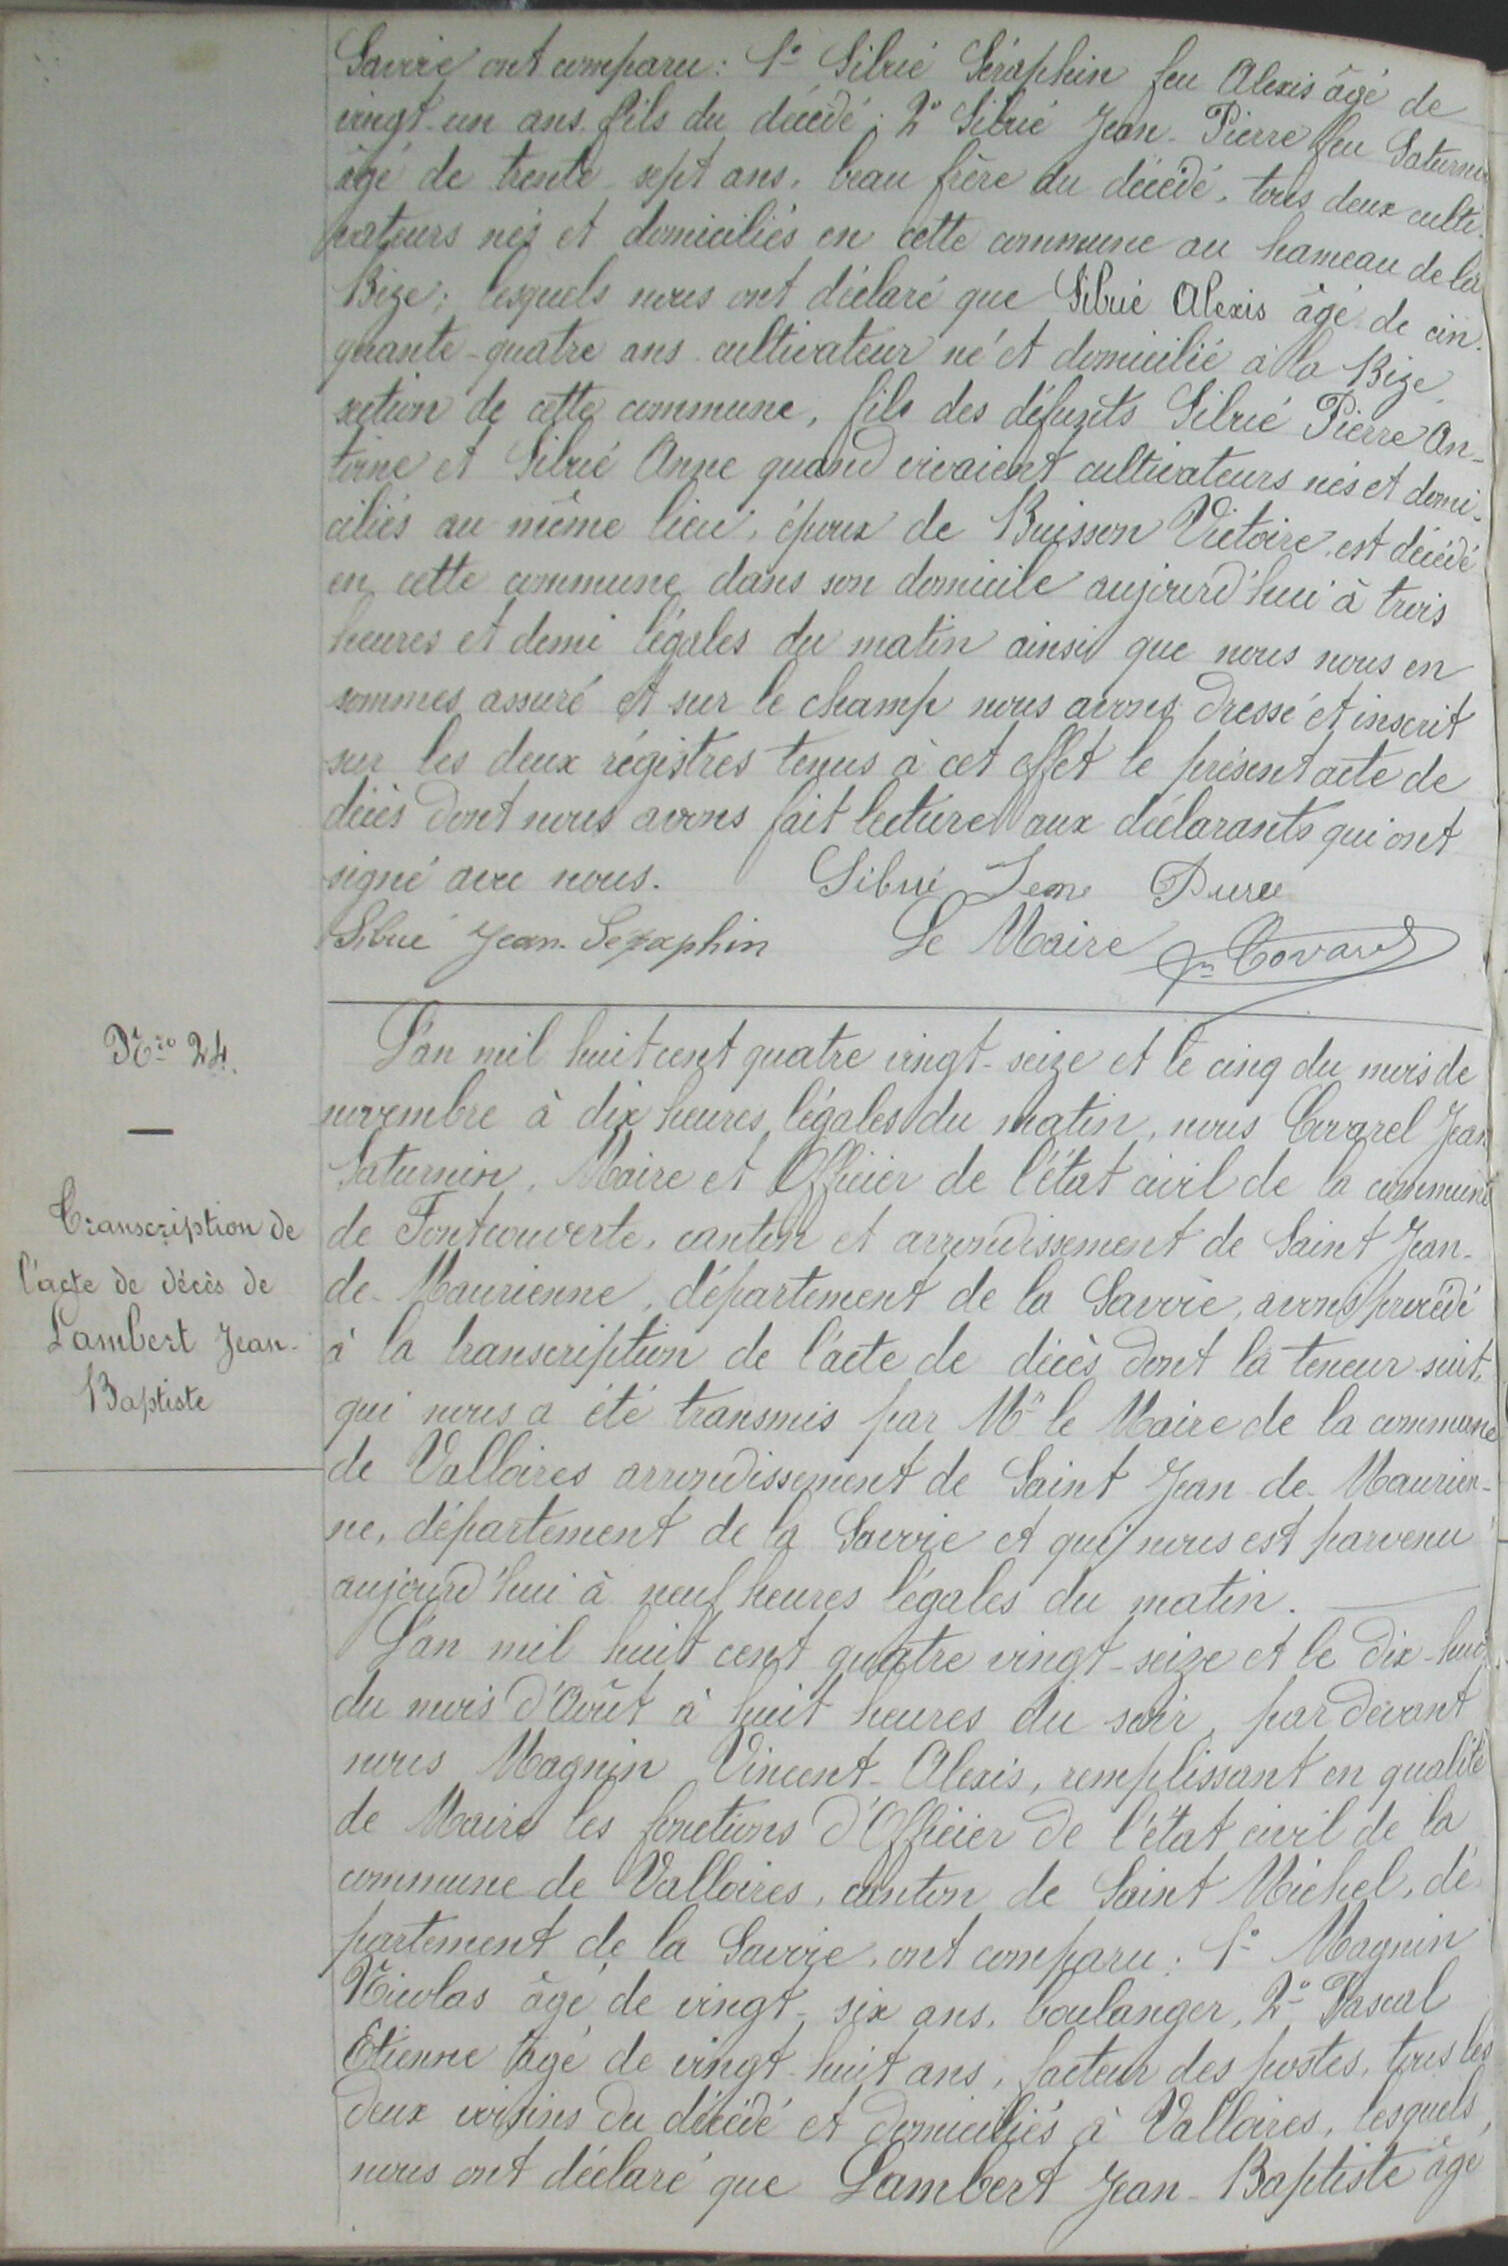 Savoie ont comparu : 1° Sibué Séraphin feu Alexis âgé de
vingt-un ans fils du décédé ; 2° Sibué Jean-Pierre feu Saturnin
âgé de trente-sept ans, beau frère du décédé, tous deux culti-
vateurs nés et domiciliés en cette commune au hameau de la
Bize ; lesquels nous ont déclaré que Sibué Alexis âgé de cin-
quante-quatre ans cultivateur né et domicilié à la Bize,
section de cette commune, fils des défunts Sibué Pierre An-
toine et Sibué Anne quand vivaient cultivateurs nés et domi-
ciliés au même lieu, époux de Buisson Victoire, est décédé
en cette commune dans son domicile aujourd'hui à trois
heures et demi légales du matin ainsi que nous nous en
sommes assuré et sur le champ nous avons dressé et inscrit
sur les deux régistres tenus à cet effet le présent acte de
décès dont nous avons fait lecture aux déclarants qui ont
signé avec nous. Sibué Jean Pierre
Sibué Jean-Seraphin Le Maire Covarel
Nro 24.
Transcription de
l'acte de décès de
Lambert Jean-
Baptiste
L'an mil huit cent quatre vingt-seize et le cinq du mois de
novembre à dix heures légales du matin, nous Covarel Jean
Saturnin, Maire et Officier de l'état civil de la commune
de Fontcouverte, canton et arrondissement de Saint Jean-
de-Maurienne, département de la Savoie, avons procédé
à la transcription de l'acte de décès dont la teneur suit,
qui nous a été transmis par Mr le Maire de la commune
de Valloires arrondissement de Saint Jean-de-Maurien-
ne, département de la Savoie et qui nous est parvenu
aujourd'hui à neuf heures légales du matin.
L'an mil huit cent quatre vingt-seize et le dix-huit
du mois d'Août à huit heures du soir, par devant
nous Magnin Vincent-Alexis, remplissant en qualité
de Maire les fonctions d'Officier de l'état civil de la
commune de Valloires, canton de Saint Michel, dé-
partement de la Savoie, ont comparu : 1° Magnin
Nicolas âgé de vingt-six ans, boulanger, 2° Pascal
Etienne âgé de vingt-huit ans, facteur des postes, tous les
deux voisins du décédé et domiciliés à Valloires, lesquels
nous ont déclaré que Lambert Jean-Baptiste âgé